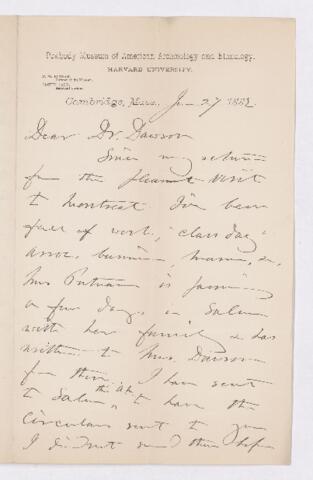 Peabody Museum of American Archaeology and Ethnology,
HARVARD UNIVERSITY.
Cambridge, Mass., 27 1882
Dear Dr. Dawson
Since my return
from the pleasant visit
to Montreal I've been
full of work, "class day"
assoc. business, museum, &c,
Mrs Putnam is passing
a few days in Salem
with her family & has
written to Mrs. Dawson
from there. I have sent
to Salem, this AM, to have the
Circulars sent to you
I did not send them before